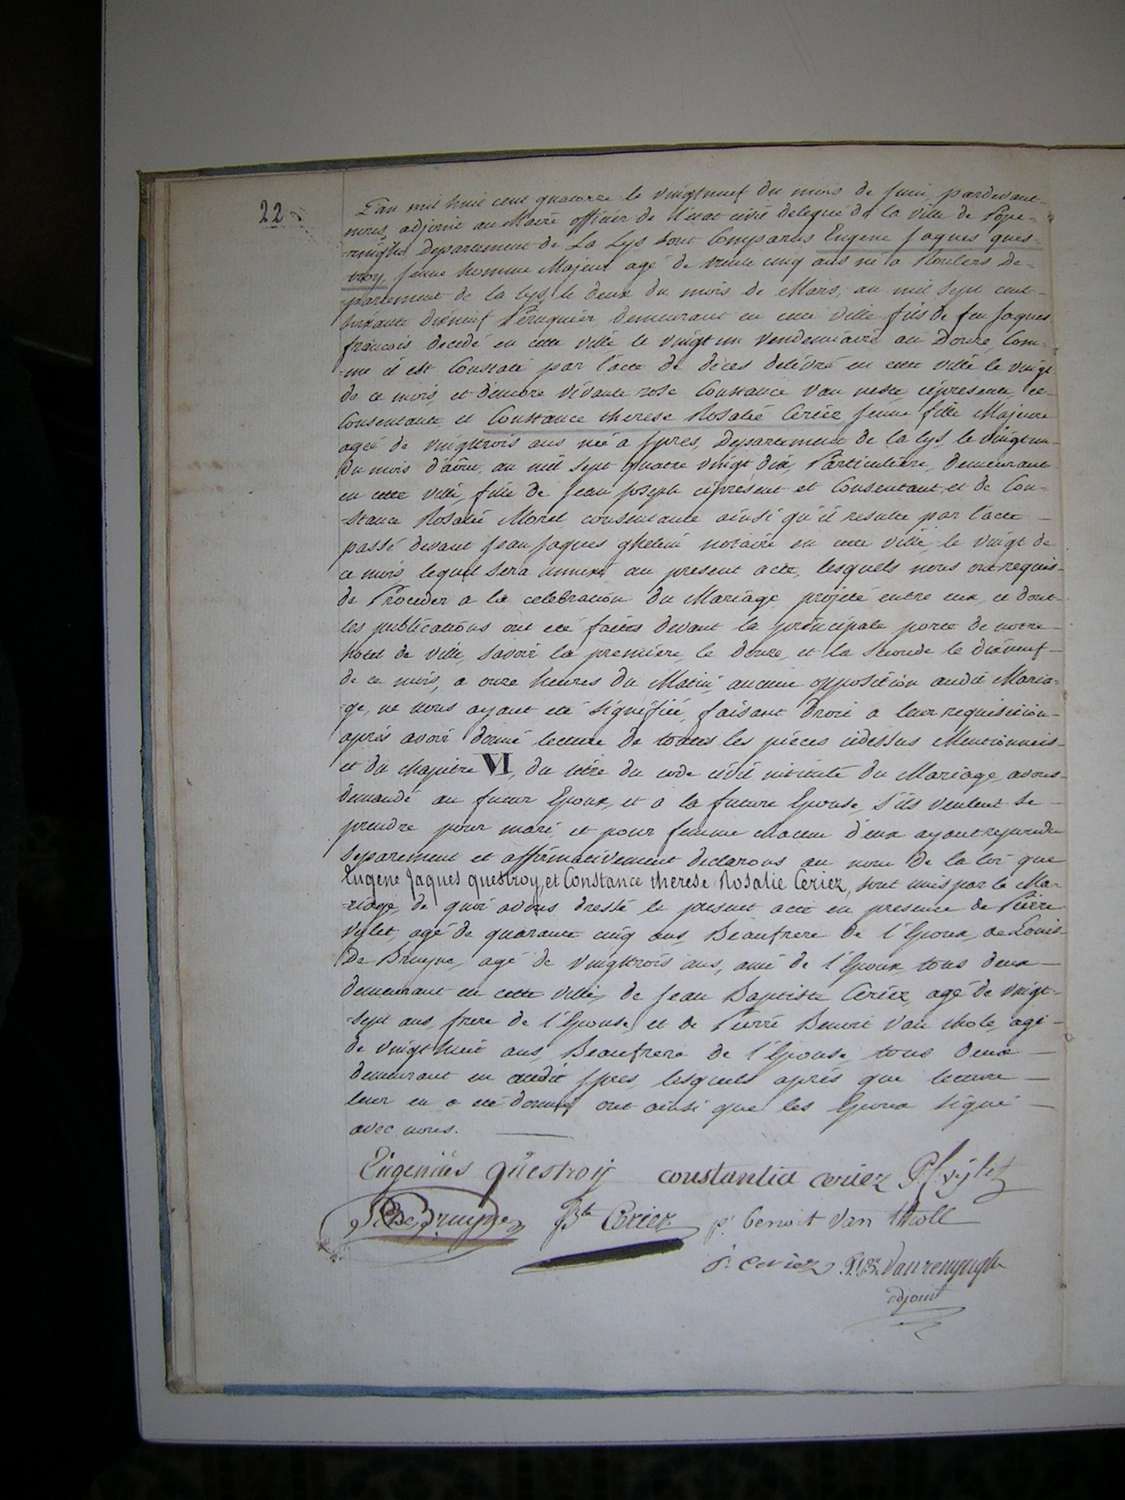 22
L'an mil huit cent quatorze le vingtneuf du mois de juin, pardevant
nous, adjoint au Maire officier de l'état civil delegué de la ville de Pope-
-ringhe Departement de La Lys sont Comparus Eugene Jaques ques-
troy, jeune homme Majeur agé de trente cinq ans né a Roulers De-
-partement de la Lys, le deux du mois de Mars, an mil sept cent
soixante dixneuf Peruquier demeurant en cette ville fils de feu Jaques
francois decedé en cette ville le vingt un vendemiaire an Douze, Com-
-me il est Constaté par l'acte de décès delivré en cette ville le vingt
de ce mois, et d'encore vivante rose Constance van neste ciprésente et
Consentante et Constance therese Rosalie Ceriez jeune fille Majeure
agée de vingttrois ans née a Ypres, Departement de la Lys, le vingt un
du mois d'août, an mil sept quatre vingt dix, Particulière, demeurant
en cette ville, fille de Jean Joseph ciprésent et Consentant et de Con-
-stance Rosalie Morel consentante ainsi qu'il resulte par l'acte
passé devant Jean Jaques ghelein notaire en cette ville, le vingt de
ce mois, lequel sera annexé au present acte, lesquels nous ont requis
de Proceder a la celebration du Mariage projeté entre eux, et dont
les publications ont été faites devant la principale porte de notre
hotel de ville, savoir la premiere, le douze, et la seconde le dixneuf
de ce mois, a onze heures du Matin, aucune opposition audit Maria-
ge, ne nous ayant été signifiée, faisant droit a leur requisition
après avoir donné lecture de toutes les pièces cidessus Mentionnées
et du chapitre VI, du titre du code civil intitulé du Mariage, avons
demandé au futur Epoux, et a la future Epouse, s'ils veulent se
prendre pour mari et pour femme chacun d'eux ayant repondu
Separement et affirmativement declarons au nom de la loi que
Eugene Jaques questroy, et Constance therese Rosalie Ceriez, sont unis par le Ma-
riage, de quoi avons dressé le present acte en presence de Pierre
Vylet, agé de quarante cinq ans, Beaufrere de l'Epoux, de Louis
De Bruyne, agé de vingttrois ans, ami de l'Epoux, tous deux
demeurant en cette ville, de Jean Baptiste Ceriez, agé de vingt-
-sept ans, frere de l'Epouse, et de Pierre Benoit Van thole, agé
de vingt huit ans, Beaufrere de l'Epouse, tous deux
demeurant en audit Ypres, lesquels après que lecture
leur en a été donné, ont ainsi que les Epoux signé
avec nous.
Eugeniûs qûestroij constantia ceriez P f vylet
De Bruyne Bte Ceriez p. benoit van tholl
j. ceriez Vanrenynghe
adjoint